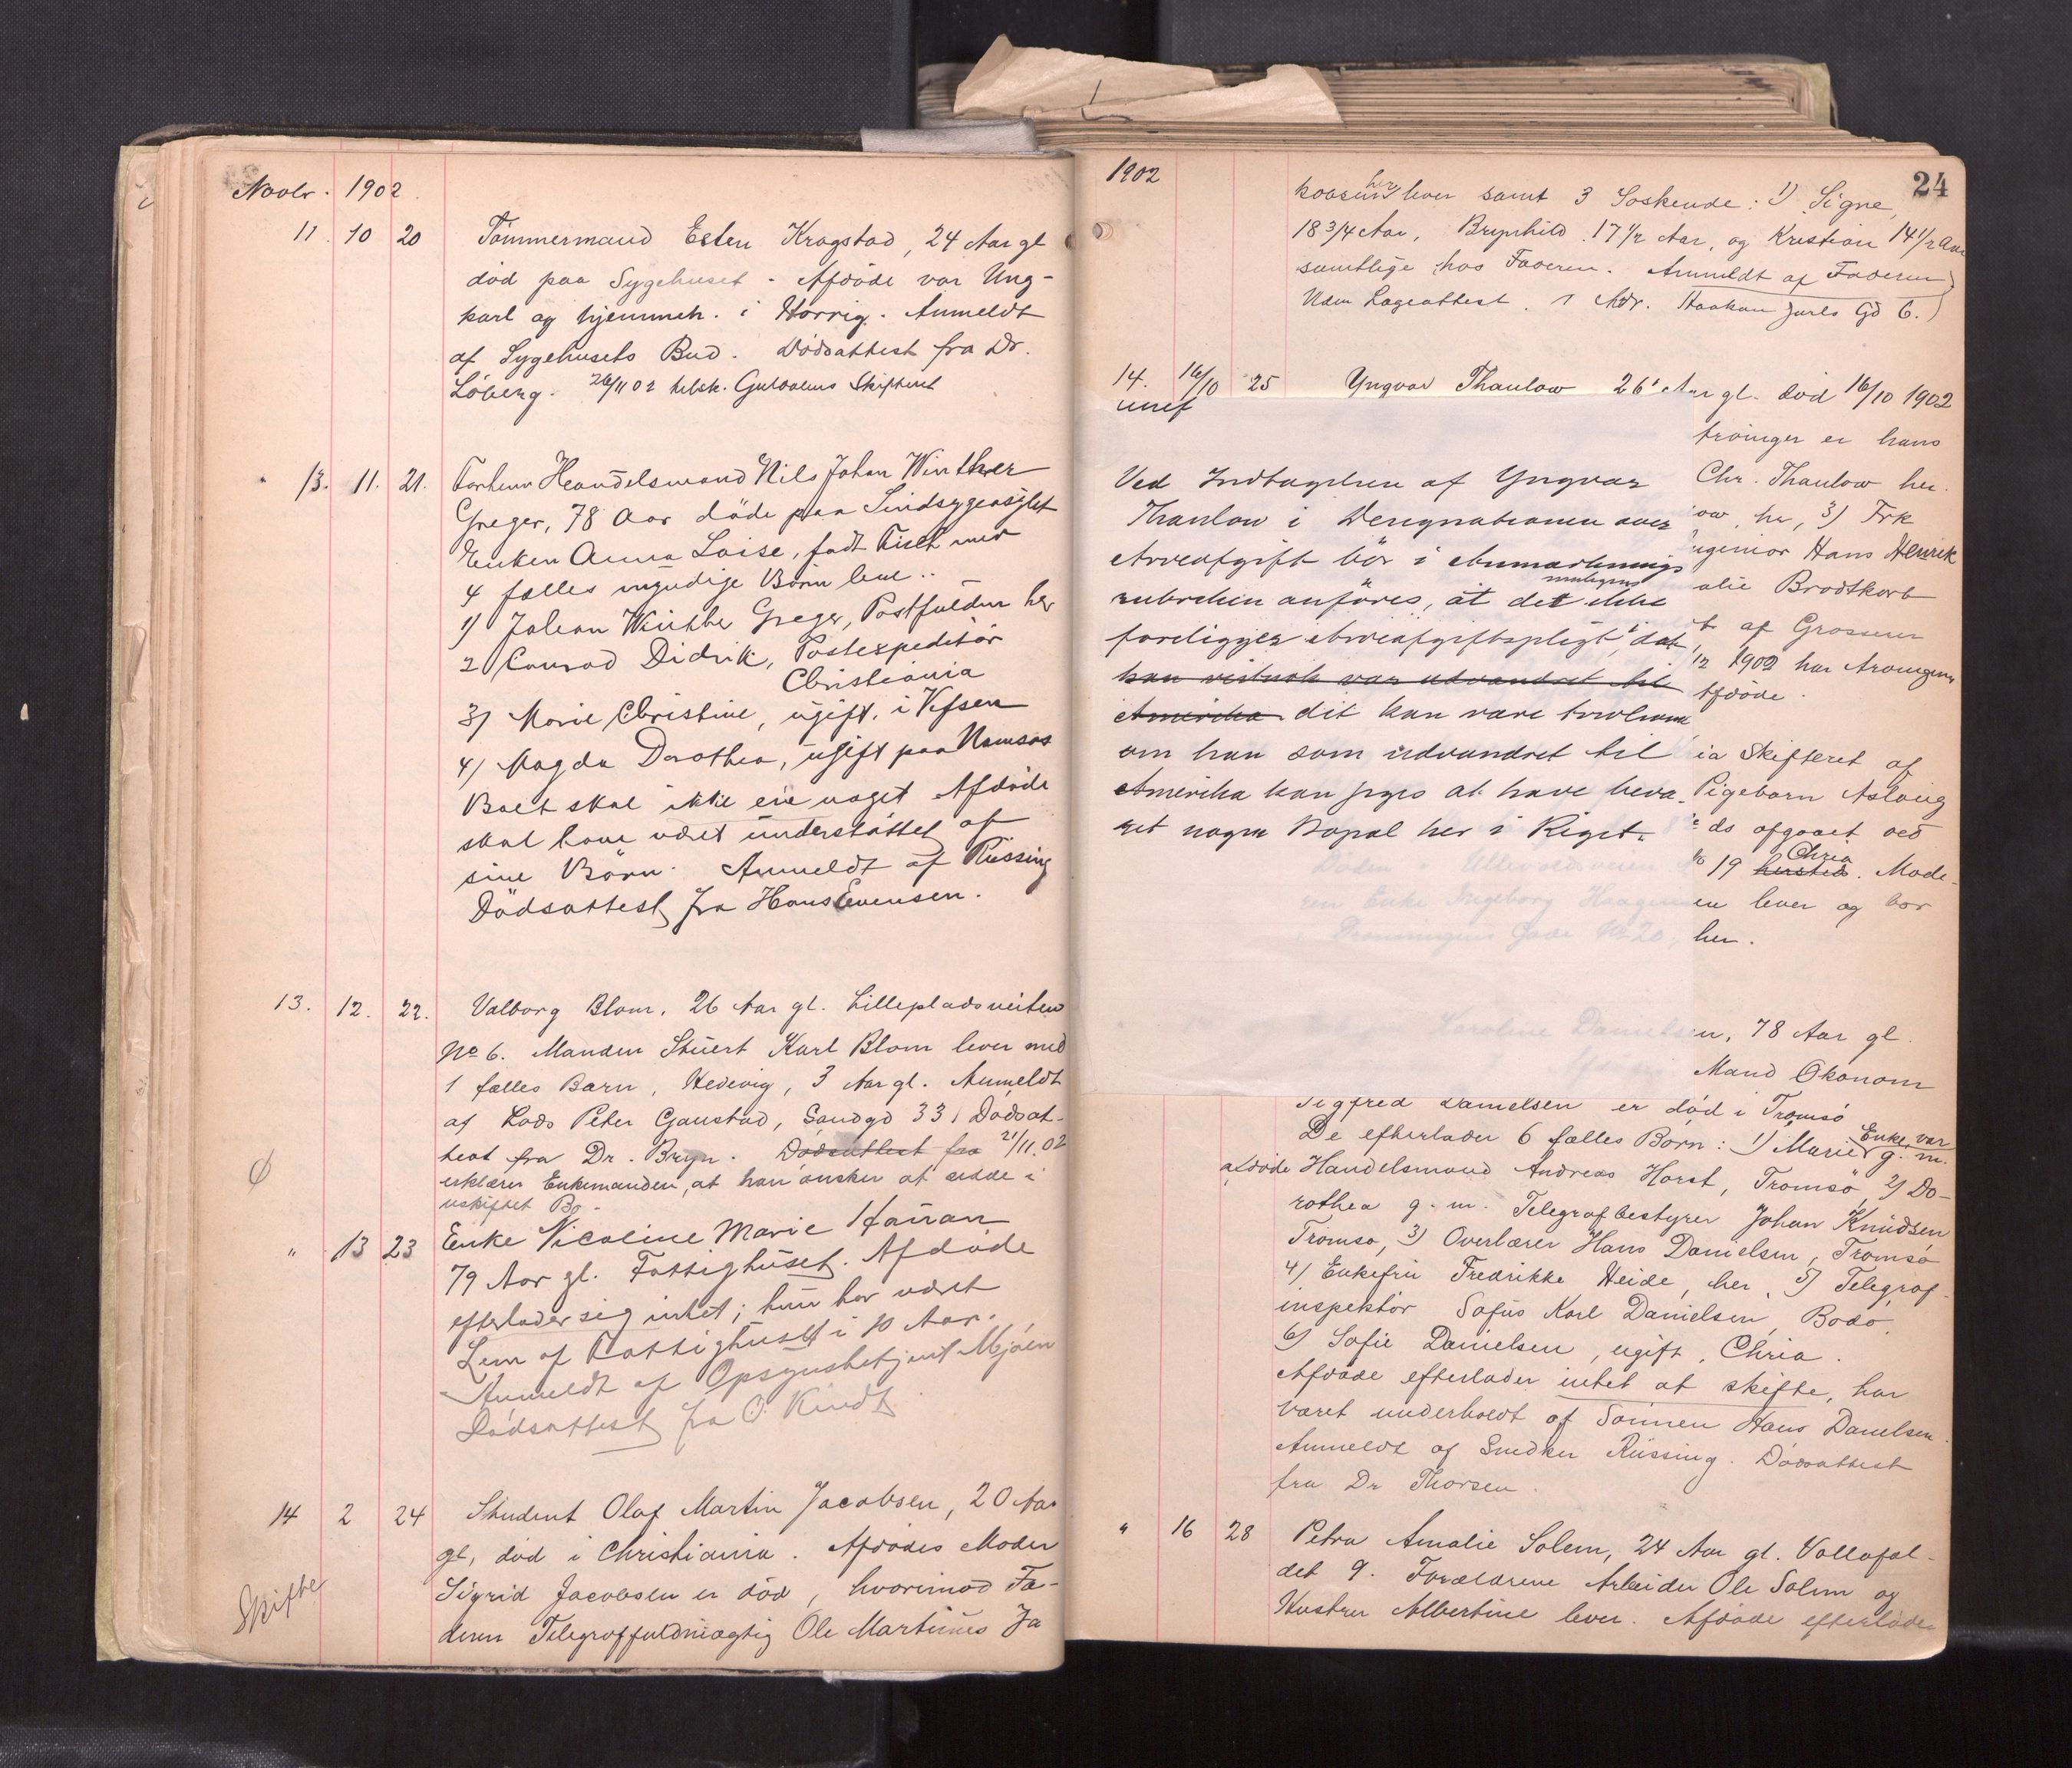 Novbr. 1902
11. 10 20 Tömmermand Esten Krogstad, 24 Aar gl
död paa Sygehuset. Afdöde var Ung-
karl og hjemmeh. i Horrig. Anmeldt
af Sygehusets Bud. Dödsattest fra Dr.
Löberg. 26/11 02 telsk. Guldalens Skifteret
13. 11. 21. Forhenv Handelsmand Nils Johan Winther
Greger, 78 Aar döde paa Sindsygeasylet
Enken Anna Loise, födt Fuct med
4 fælles myndige Börn leve..
1) Johan Winther Greger, Postfuldm her
2 Conrad Didrik, Postexpeditör
Christiania
3) Marie Christine, ugift. i Vefsen
4) Magda Dorothea, ugift paa Namsos
Boet skal ikke eie noget Afdöde
skal have været understöttet af
sine Börn. Anmeldt af Rüssing
Dödsattest fra Hans Evensen.
13. 12. 22. Valborg Blom, 26 Aar gl. Lillepladsveiten
No 6. Manden Stuert Karl Blom lever med
1 fælles Barn, Hedevig, 3 Aar gl. Anmeldt
af Lods Peter Gaustad, Sandgd 33, Dödsat-
test fra Dr. Bryn. Dödsattest fra 21/11.02
erklærer Enkemanden, at han önsker at sidde i
uskiftet Bo.
" 13 23 Enke Nicoline Marie Haüan
79 Aar gl. Fattighüset. Afdöde
efterlader sig intet; hun har været
Lem af Fattighüset i 10 Aar.
Anmeldt af Opsynsbetjent Mjöen
Dödsattest fra O. Kindt
14 2 24 Student Olaf Martin Jacobsen, 20 Aar
gl, död i Christiania. Afdödes Moder
Sigrid Jacobsen er död, hvorimod Fa-
Skifte
deren Telegraffuldmægtig Ole Martinus Ja
1902
24
kobsen her lever samt 3 Söskende: 1) Signe,
18 3/4 Aar, Brynhild 17 1/2 Aar, og Kristian 14 1/2 Aar
samtlige hos Faderen. Anmeldt af Faderen
Uden Lægeattest. 1 Adr. Haakon Jarls Gd 6.)
14. 16/10 25 Yngvar Thaulow 26 Aar gl. död 16/10 1902
Ved Indtagelsen af Yngvar
Thaulow i Designationen over
Arveafgift bör i Anmærknings
rubrikken anföres, at det ikke
muligens
foreligger Arveafgiftspligt, da
han vistnok var udvandret til
Amerika det kan være tvilsomt
om han som udvandret til
Amerika kan siges at have beva-
ret nogen Bopæl her i Riget.
tvinger er hans
Chr. Thaulow her.
ow, her, 3) Frk
ngeniör Hans Henrik
alie Brodtkorb
af Grosserer
12 1902 har Arvingerne
fdöde.
ia Skifteret af
Pigebarn Aslaug
ds afgaaet ved
19 hersted. Chria. Mode-
en lever og bor
her.
Döden. Ullevoldsveien
ren Enke Ingeborg Haagen
Dronningens Gade No 20,
Karoline Danielsen, 78 Aar gl.
Mand Ökonom
Sigfred Danielsen er död i Tromsö
De efterlader 6 fælles Börn: 1) Marie Enke var g. m.
afdöde Handelsmand Andreas Horst, Tromsö, 2) Do-
rothea g. m. Telegrafbestyrer Johan Knüdsen
Tromsö, 3) Overlærer Hans Danielsen, Tromsö
4) Enkefru Fredrikke Heide, her, 5) Telegraf-
inspektör Sofus Karl Danielsen, Bodö,
6) Sofie Danielsen, ugift, Chria.
Afdöde efterlader intet at skifte, har
været underholdt af Sönnen Hans Danielsen.
Anmeldt af Snedker Rüssing. Dödsattest
fra Dr Thorsen.
" 16 28 Petra Amalie Solem, 24 Aar gl. Vollafal-
det 9. Forældrene Arbeider Ole Solem og
Hustru Albertine lever. Afdöde efterlader